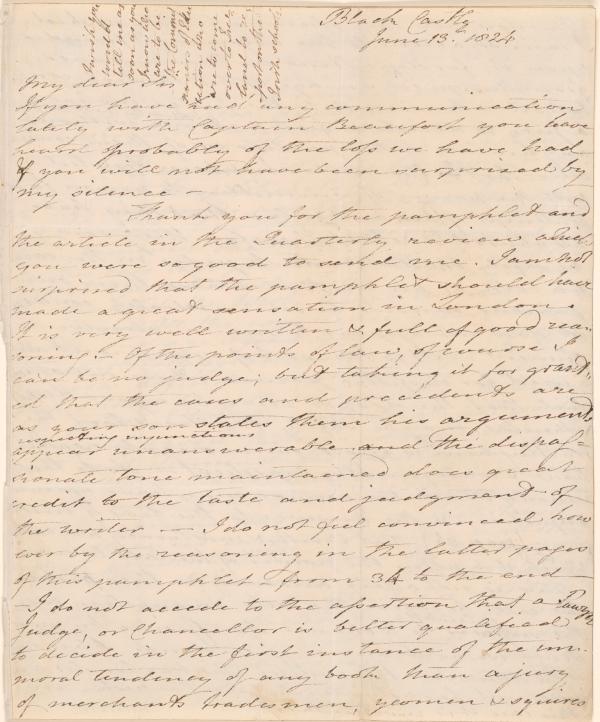 Black Castle
June 13th 1824
I wish you
would
tell me as
soon as you
know who
are to be
the Commis
sioners of Edu
cation who
are to come
over to Ire
land to re
port on the
Irish schools
My dear Sir
If you have had any communication
lately with Captain Beaufort you have
heard probably of the loss we have had
& you will not have been surprised by
my silence —
Thank you for the pamphlet and
the article in the Quarterly review which
you were so good to send me. I am not
surprised that the pamphlet should have
made a great sensation in London.
It is very well written & full of good rea
soning — Of the points of law, of course I
can be no judge; but taking it for grant
ed that the cases and precedents are
as your son states them his arguments
respecting injunctions
appear unanswerable and the dispas
sionate tone maintained does great
credit to the taste and judgment of
the writer — I do not feel convinced how
ever by the reasoning in the latter pages
of this pamphlet — from 34 to the end —
— I do not accede to the assertion that a Lawyer
Judge, or Chancellor is better qualified
to decide in the first instance of the im
moral tendency of any book than a jury
of merchants tradesmen, yeomen & squires